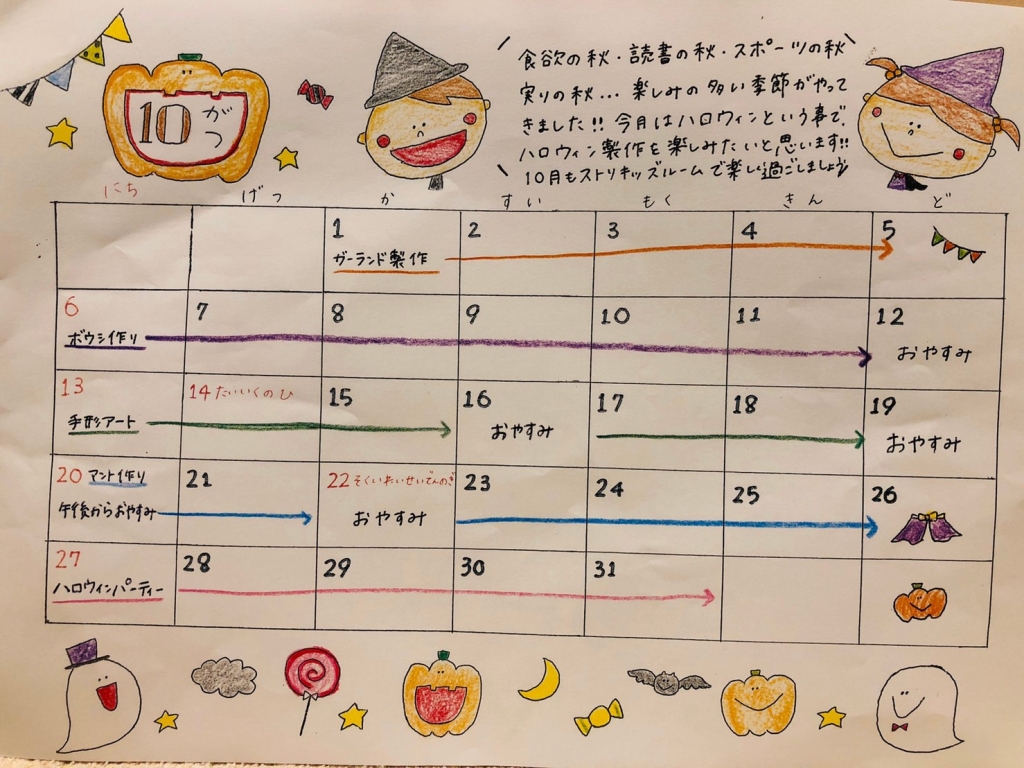 10がつ
食欲の秋・読書の秋・スポーツの秋
実りの秋...楽しみの多い季節がやって
きました!!今月はハロウィンという事で、
ハロウィン製作を楽しみたいと思います!!
10月もストリキッズルームで楽しく過ごしましょう
にち げつ か すい もく きん ど
1 2 3 4 5
ガーランド製作
6 7 8 9 10 11 12
ボウシ作り おやすみ
13 14 たいいくのひ 15 16 17 18 19
手形アート おやすみ おやすみ
20 マント作り 21 22 そくいれいせいでんのぎ 23 24 25 26
午後からおやすみ おやすみ
27 28 29 30 31
ハロウィンパーティー